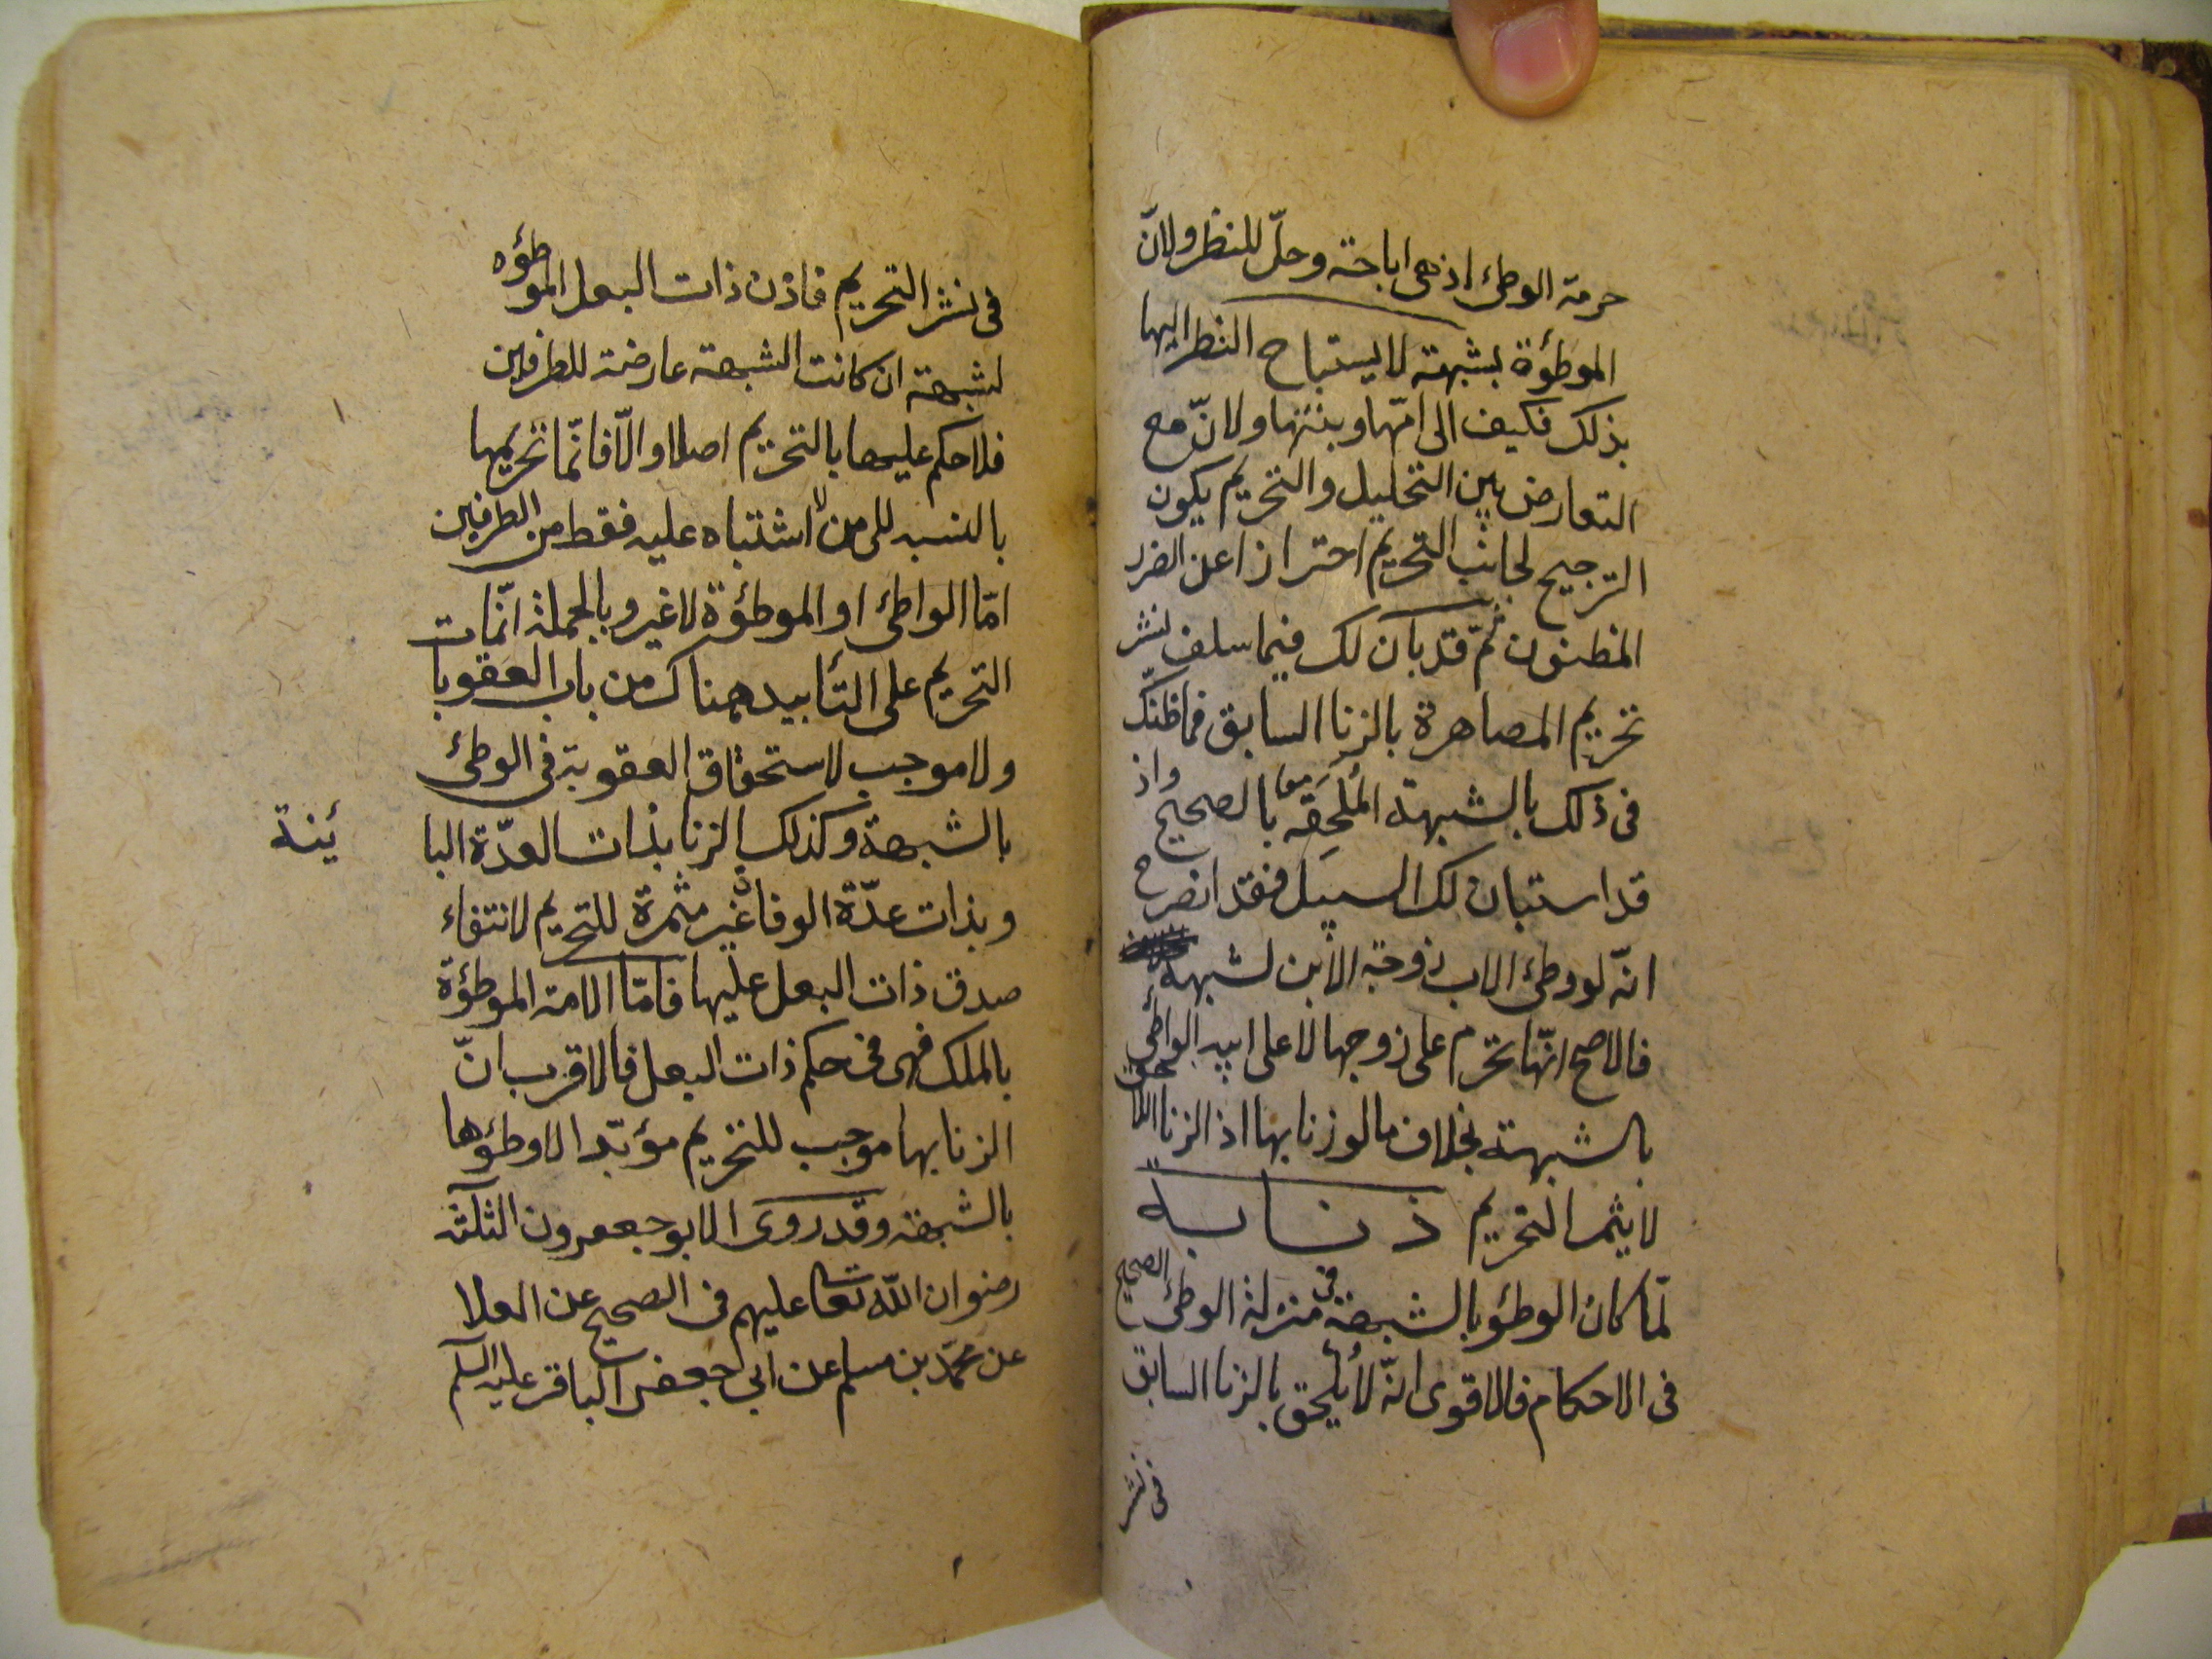 حرمة الوطئ اذ هى اباحة وحلّ للنظر ولانّ
الموطؤة بشبهة لا يستباح النظر اليها
بذلك فكيف الى امّها وبنتها ولانّ مع
التعارض بين التحليل والتحريم يكون
الترجيح لجانب التحريم احترازا عن الضرر
المظنون ثمّ قد بان لك فيما سلف نشر
تحريم المصاهرة بالزنا السابق فما ظنّك
فى ذلك بالشبهة المُلحَقة بالصحيح واذ
قد استبان لك السبيل فقد انصرح
انّه لو وطئ الاب زوجة الابن لشبهة
فالاصح انّها تحرم على زوجها لا على ابيه الواطئ
بالشبهة بخلاف ما لو زنا بها اذ الزنا اللاحق
لا يثمر التحريم ذنابـه
لمّا كان الوطؤ بالشبهة فى منزلة الوطئ الصحيح
فى الاحكام فالاقوى انّه لا يُلحق بالزنا السابق
فى نشر
فى نشر التحريم فاذن ذات البعل الموطؤه
لشبهة ان كانت الشبهة عارضة للطرفين
فلا حكم عليها بالتحريم اصلا والّا فانّما تحريمها
بالنسبه الى من لا اشتباه عليه فقط من الطرفين
امّا الواطئ او الموطؤة لا غير وبالجملة انّما ت
التحريم على التأبيد هناك من باب العقوبا
ولا موجب لاستحقاق العقوبة فى الوطئ
بالشبهة وكذلك الزنا بذات العدّة البا ئنة
وبذات عدّة الوفاة غير مثمرة للتحريم لانتفاء
صدق ذات البعل عليها فامّا الامة الموطؤة
بالملك فهى فى حكم ذات البعل فالاقرب انّ
الزنا بها موجب للتحريم مؤبّدا لا وطؤها
بالشبهة وقد روى الابو جعفرون الثلثة
رضوان اللّه تعا عليهم فى الصحيح عن العلا
عن محمّد بن مسلم عن ابى جعفر الباقر عليه السلم